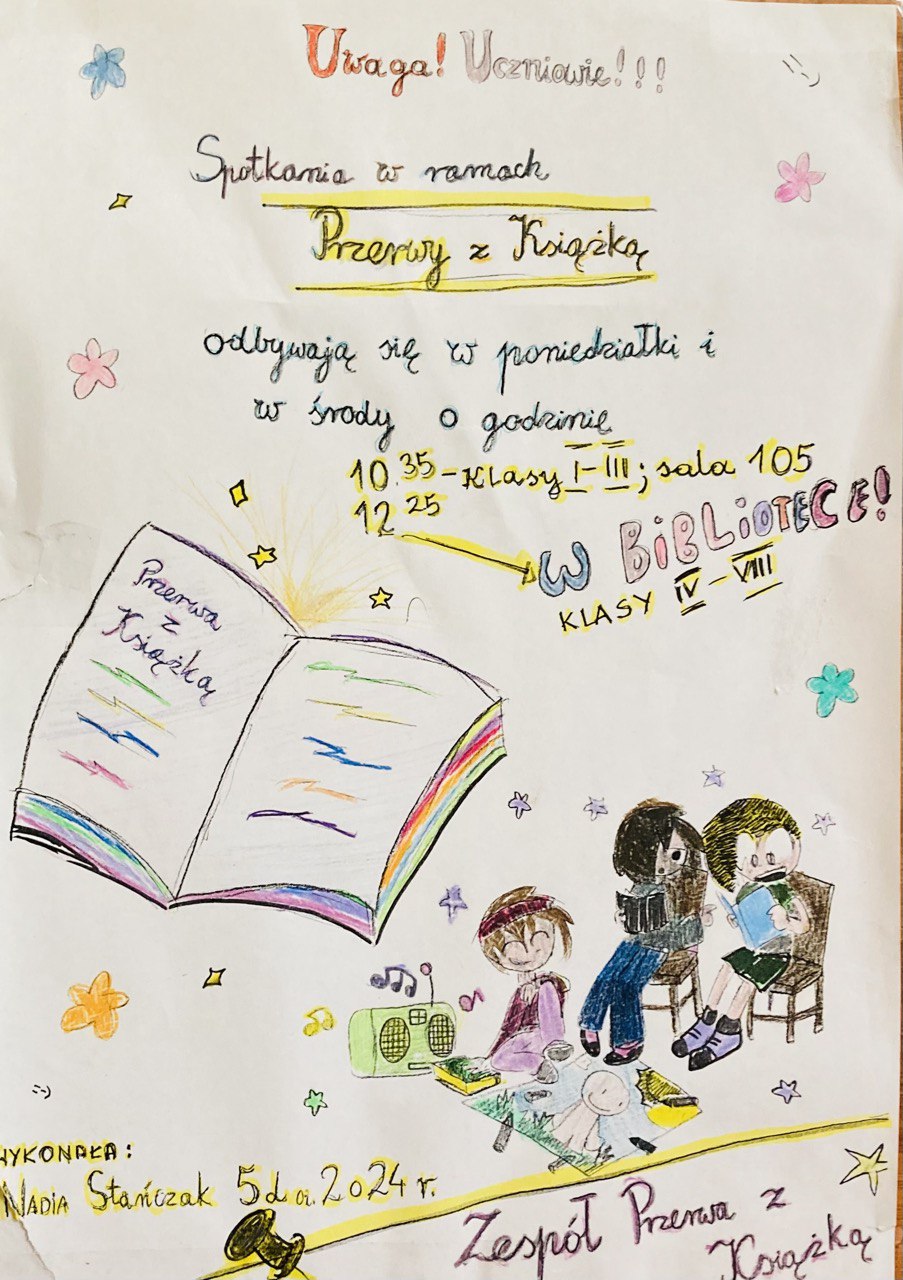 Uwaga! Uczniowie!!!
Spotkania w ramach
Przerwy z Książką
odbywają się w poniedziałki i
w środy o godzinie
10.35 - Klasy I-III; sala 105
12 25
W BiBLiOTECE!
KLASY IV - VIII
Przerwa
z
Książką
WYKONAŁA:
NADIA Stańczak 5d 2024 r.
Zespół Przerwa z
Książką